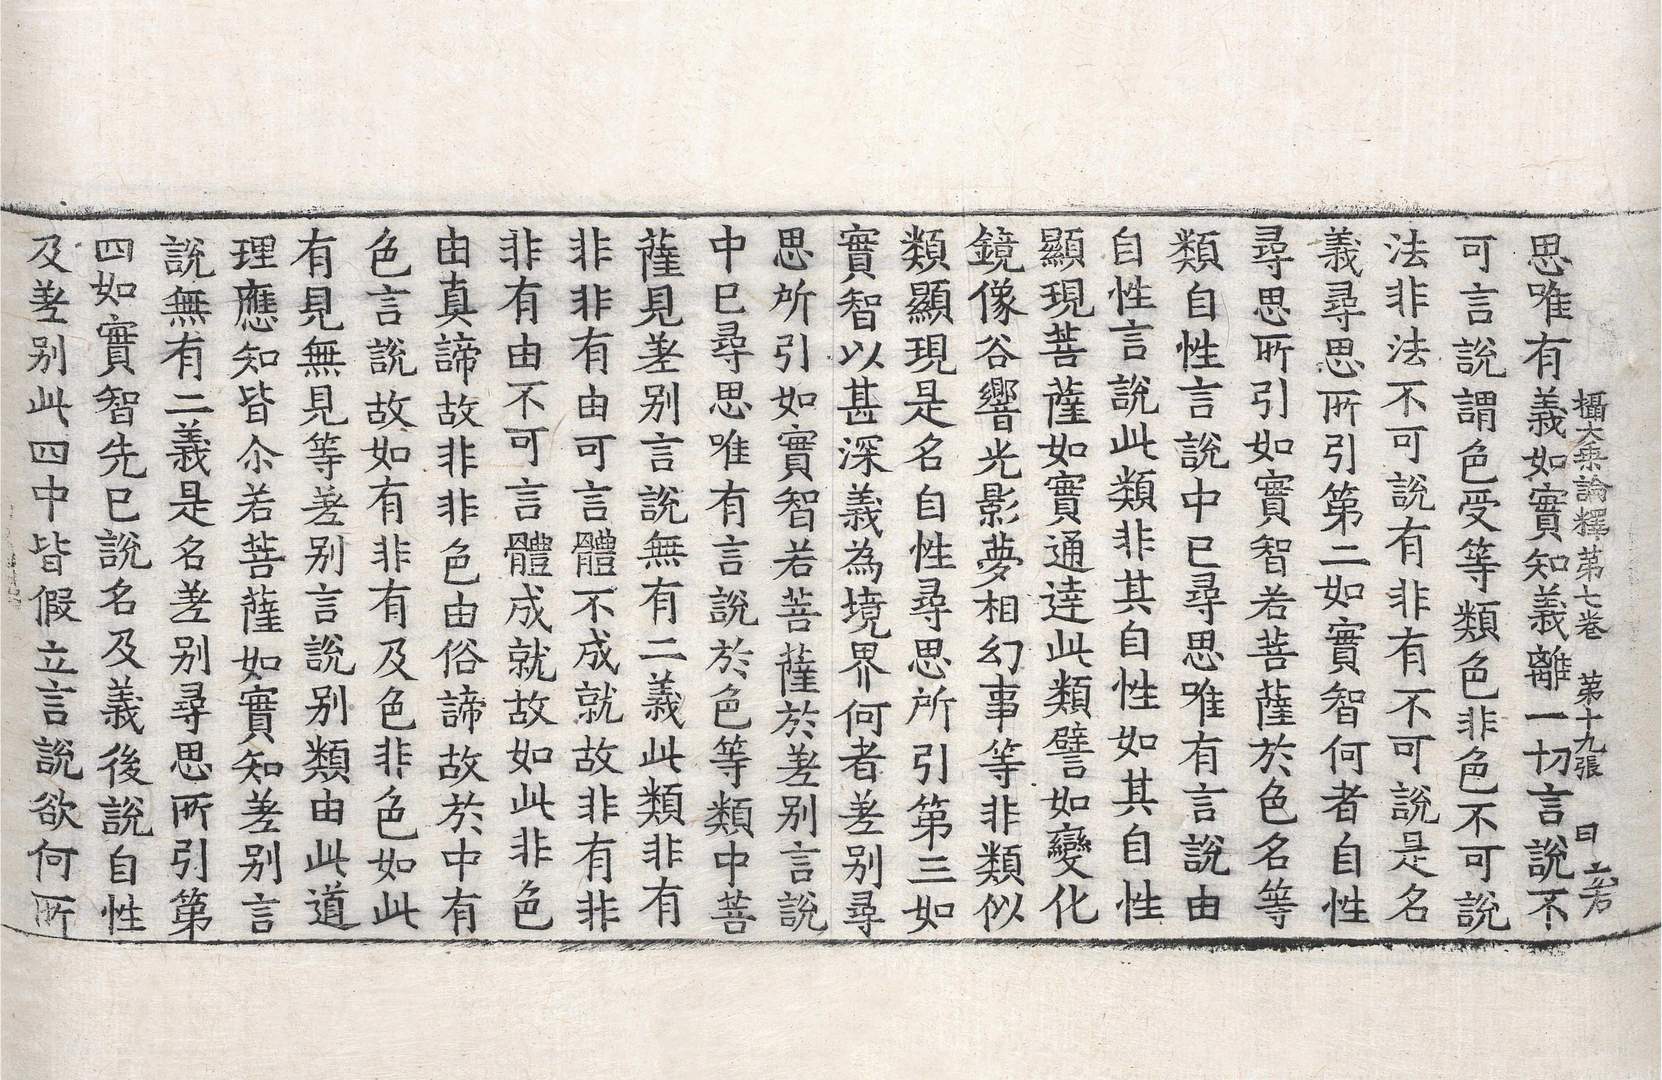 攝大乘論釋第七卷　第十九張　曰
思唯有義如實知義離一切言說不
可言說謂色受等類色非色不可說
法非法不可說有非有不可說是名
義尋思所引第二如實智何者自性
尋思所引如實智若菩薩於色名等
類自性言說中已尋思唯有言說由
自性言說此類非其自性如其自性
顯現菩薩如實通達此類譬如變化
鏡像谷響光影夢相幻事等非類似
類顯現是名自性尋思所引第三如
實智以甚深義為境界何者差別尋
思所引如實智若菩薩於差別言說
中已尋思唯有言說於色等類中菩
薩見差別言說無有二義此類非有
非非有由可言體不成就故非有非
非有由不可言體成就故如此非色
由真諦故非非色由俗諦故於中有
色言說故如有非有及色非色如此
有見無見等差別言說別類由此道
理應知皆尒若菩薩如實知差別言
說無有二義是名差別尋思所引第
四如實智先已說名及義後說自性
及差別此四中皆假立言說欲何所